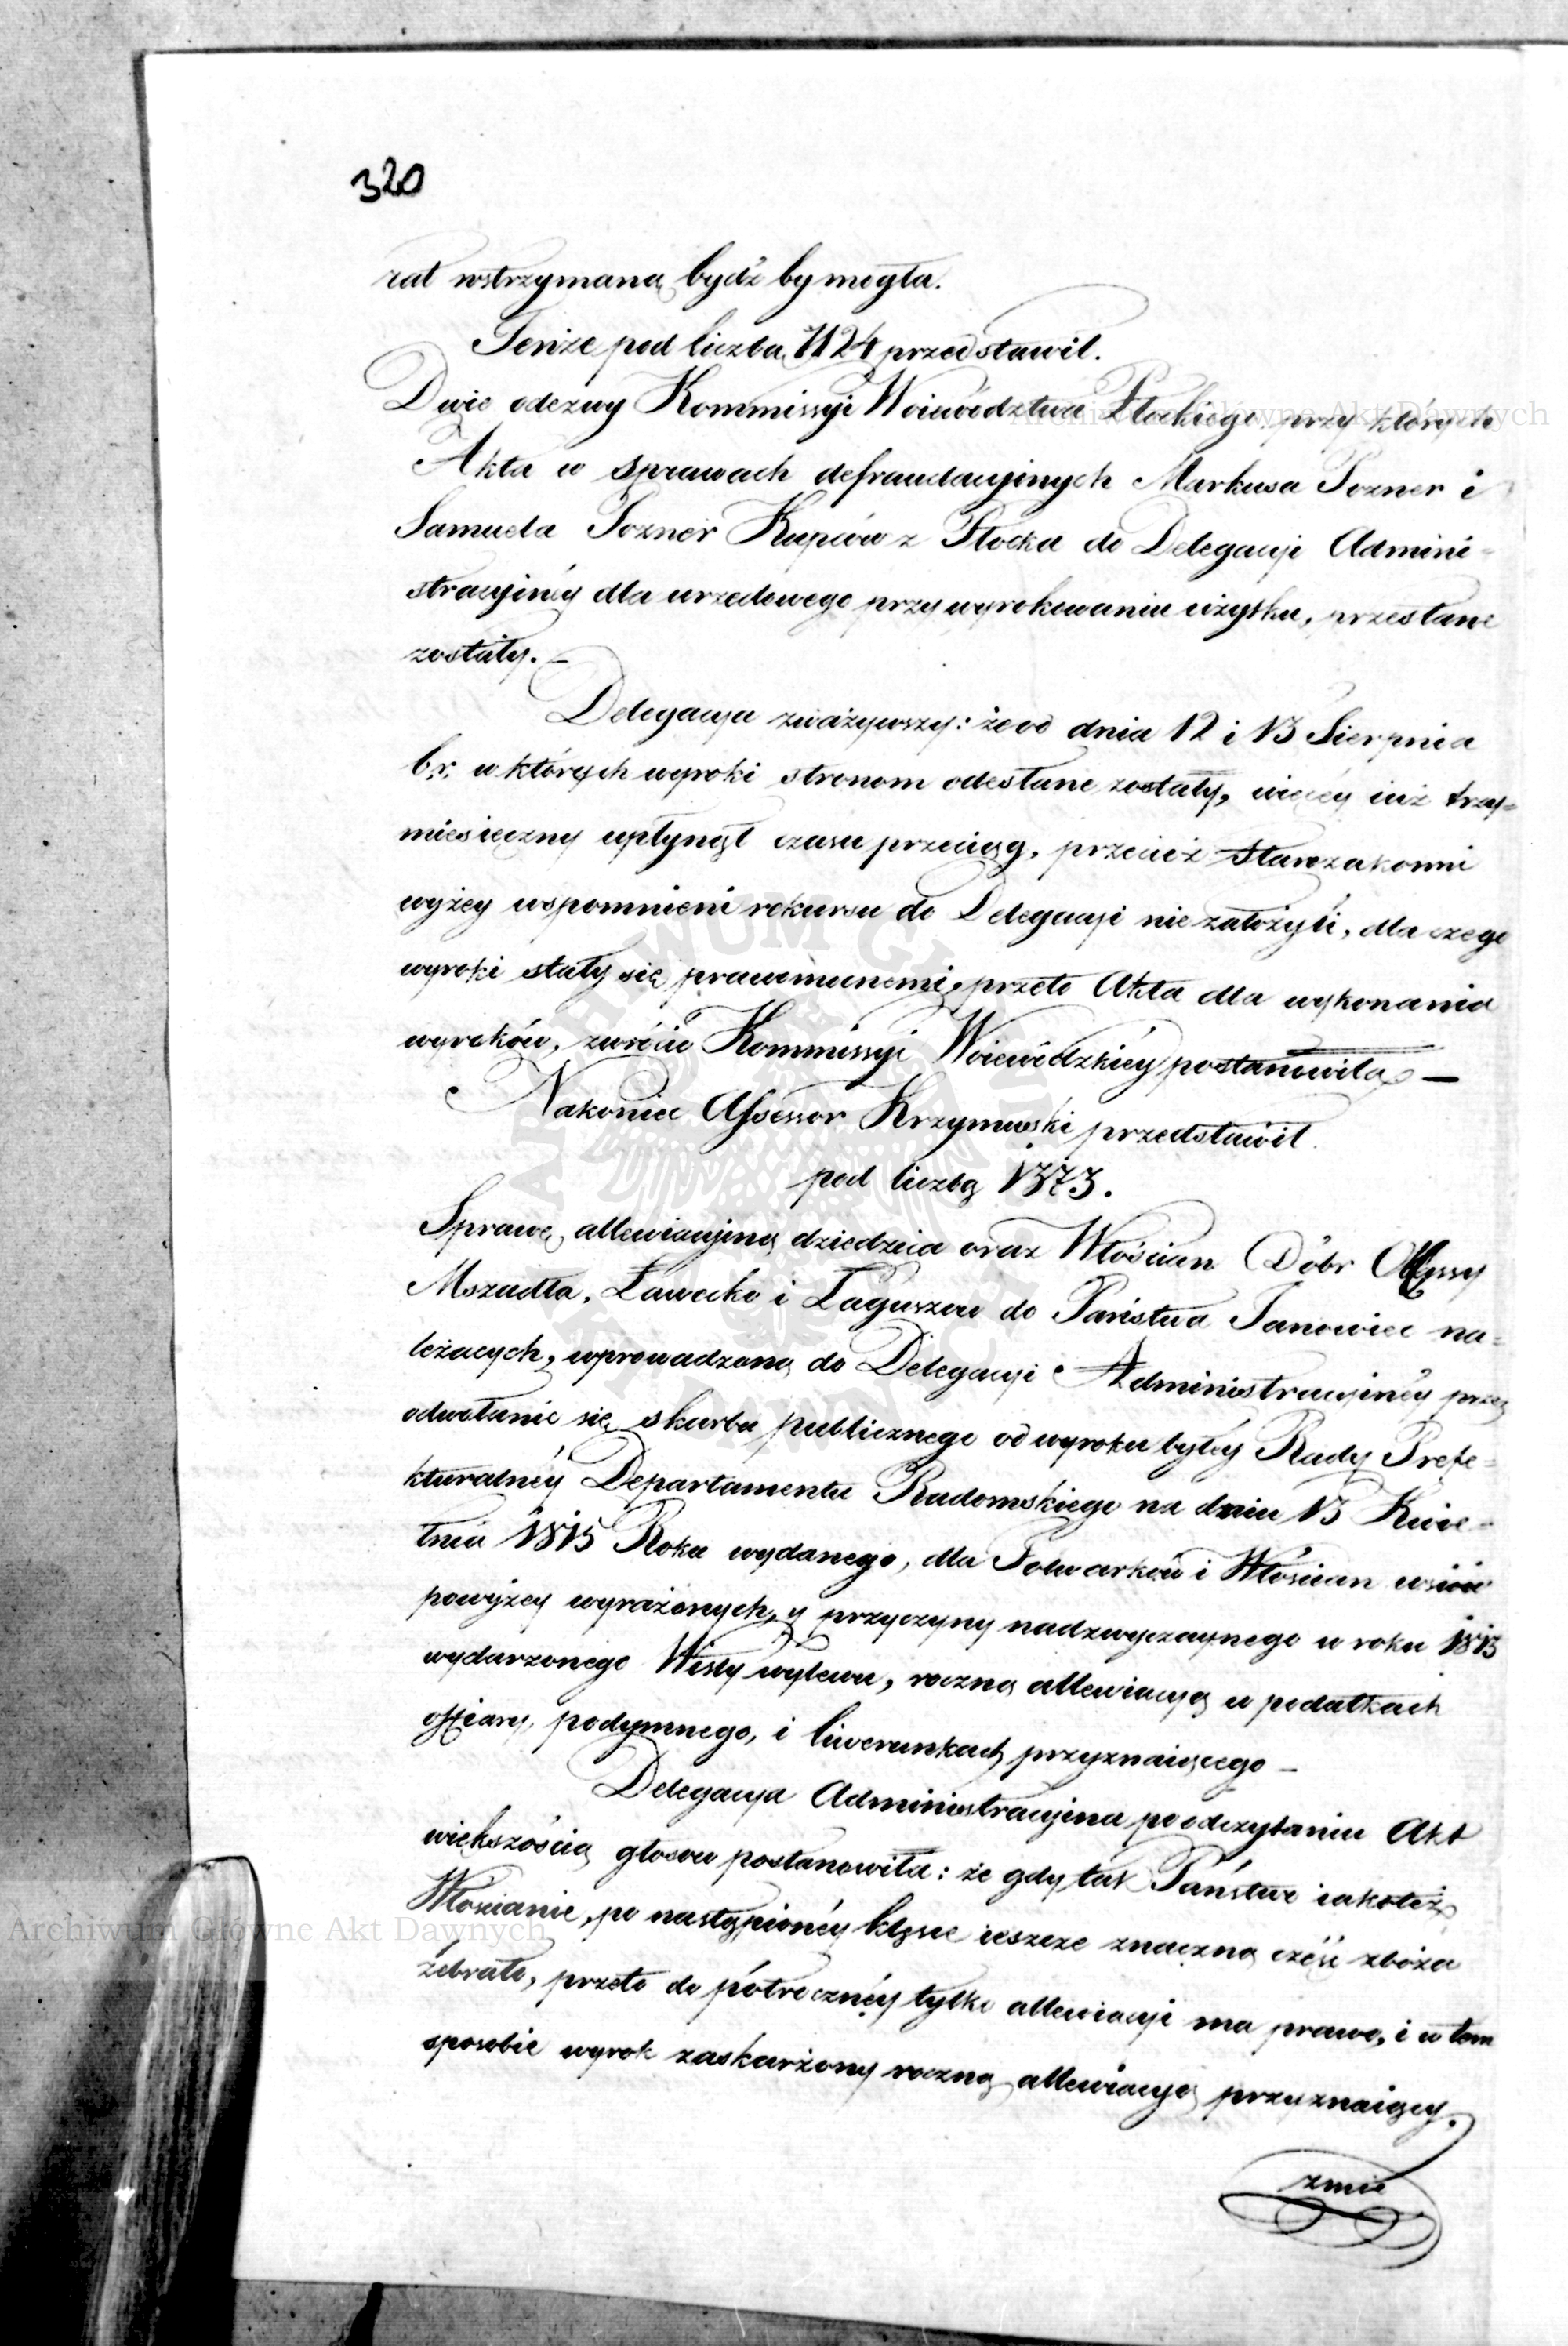 320
rat wstrzymaną bydź by mogła.
Tenże pod liczbą 1124 przedstawił.
Dwie odezwy Kommissyi Woiewództwa Płockiego przy których
Akta w sprawach defraudacyinych Markusa Pozner i
Samuela Pozner Kupców z Płocka do Delegacyi Admini-
stracyinéy dla urzędowego przy wyrokowaniu użytku, przesłane
zostały. —
Delegacya zważywszy: że od dnia 12 i 13 Sierpnia
b.r. w których wyroki stronom odesłane zostały, więcéy iuż trzy=
miesięczny upłynął czasu przeciąg, przecież Starozakonni
wyżey wspomnieni rekursu do Delegacyi nie założyli, dla czego
wyroki stały się prawomocnemi, przeto Akta dla wykonania
wyroków, zwrócić Kommissyi Woiewódzkiéy postanowiła, —
Nakoniec Assessor Krzymuski przedstawił.
pod liczbą 1373.
Sprawę allewiacyiną dziedzica oraz Włościan Dóbr
Mszadła, Ławecko i Łaguszow do Państwa Janowiec na=
leżących, wprowadzoną do Delegacyi Administracyinéy przez
odwołanie się skarbu publicznego od wyroku byłéy Rady Prefe=
kturalnéy Departamentu Radomskiego na dniu 13 Kwie=
tnia 1815 Roku wydanego, dla Folwarków i Włościan wsiów
powyżey wyrażonych, z przyczyny nadzwyczaynego w roku 1813
wydarzonego Wisły wylewu, roczną allewiacyą w podatkach
offiary, podymnego, i liwerunkach przyznaiącego —
Delegacya Administracyina po odczytaniu Akt
większością głosów postanowiła: że gdy tak Państwo iakoteż
Włościanie, po nastąpionéy klęsce ieszcze znaczną część zboża
zebrało, przeto do półrocznéy tylko allewiacyi ma prawo, i w tem
sposobie wyrok zaskarżony roczną allewiacyą przyznaiący,
zmie
Archiwum Główne Akt Dawnych
Archiwum Główne Akt Dawnych